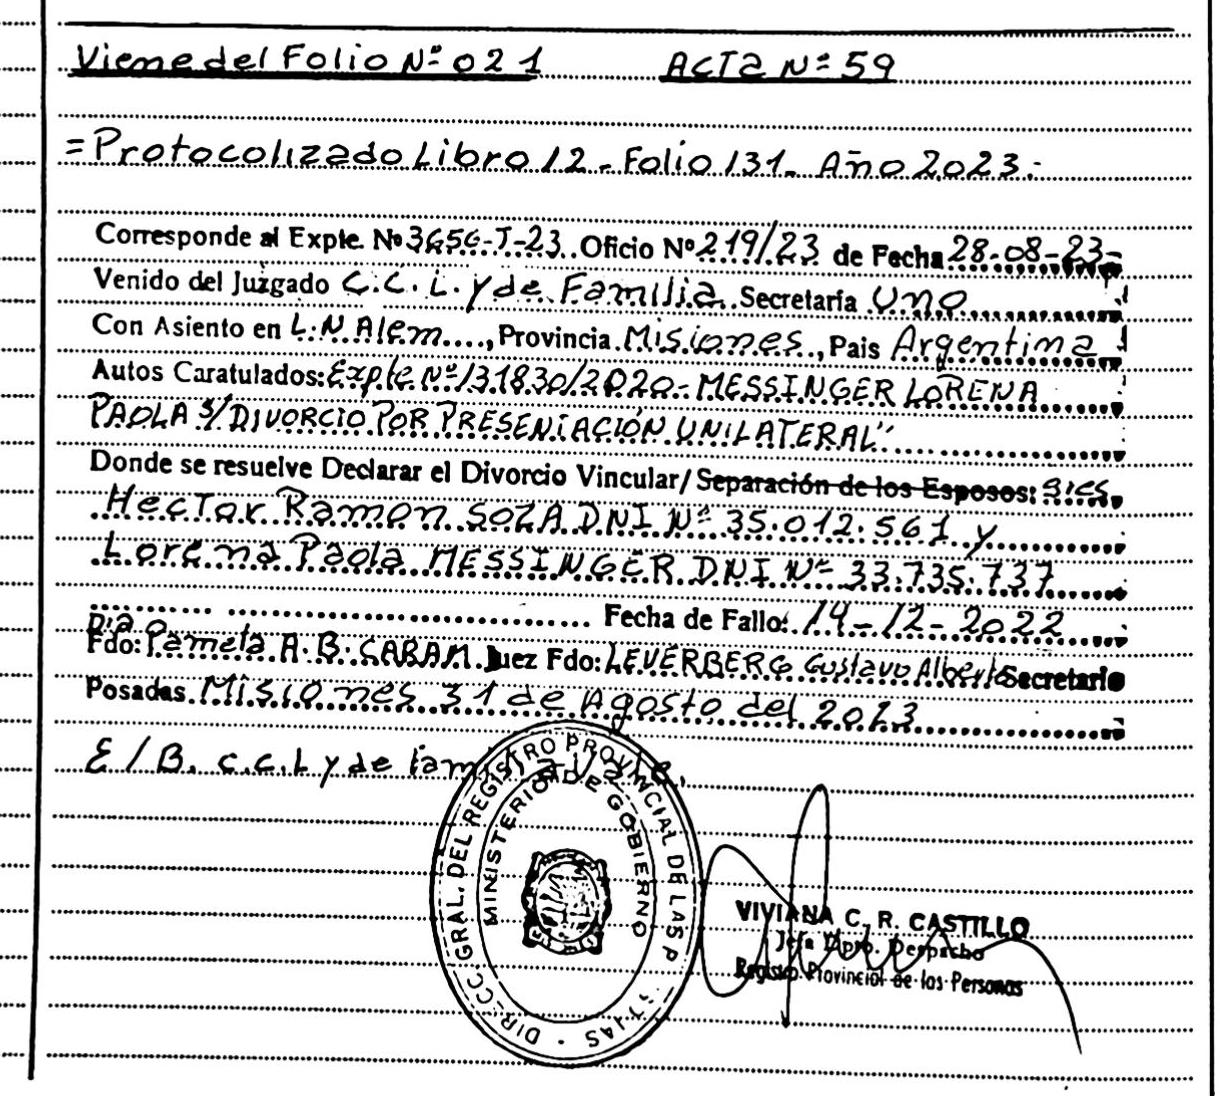 Viene del Folio Nº 021 ACTA Nº 59
= Protocolizado Libro 12 - Folio 131 - Año 2023 -
Corresponde al Expte. Nº 3656-J-23 Oficio Nº 219/23 de Fecha 28-08-23-
Venido del Juzgado C. C. L. y de Familia Secretaría Uno
Con Asiento en L. N. Alem, Provincia Misiones, Pais Argentina
Autos Caratulados: Expte Nº 131830/2020 - MESSINGER LORENA
PAOLA S/ DIVORCIO POR PRESENTACIÓN UNILATERAL"
Donde se resuelve Declarar el Divorcio Vincular/ Separación de los Esposos:
Hector Ramon SOZA DNI Nº 35.012.561 y
Lorena Paola MESSINGER DNI Nº 33.735.737
Fecha de Fallo: 14-12-2022
Dra
Fdo: Pamela A. B. CARAM Juez Fdo: LEVERBERG Gustavo Alberto Secretario
Posadas Misiones 31 de Agosto del 2023
E / B. C. C. L y de familia vale.
DIRECC GRAL. DEL REGISTRO PROVINCIAL DE LAS P
MINISTERIO DE GOBIERNO
VIVIANA C. R. CASTILLO
Jefa Dpto. Despacho
Registro Provincial de las Personas